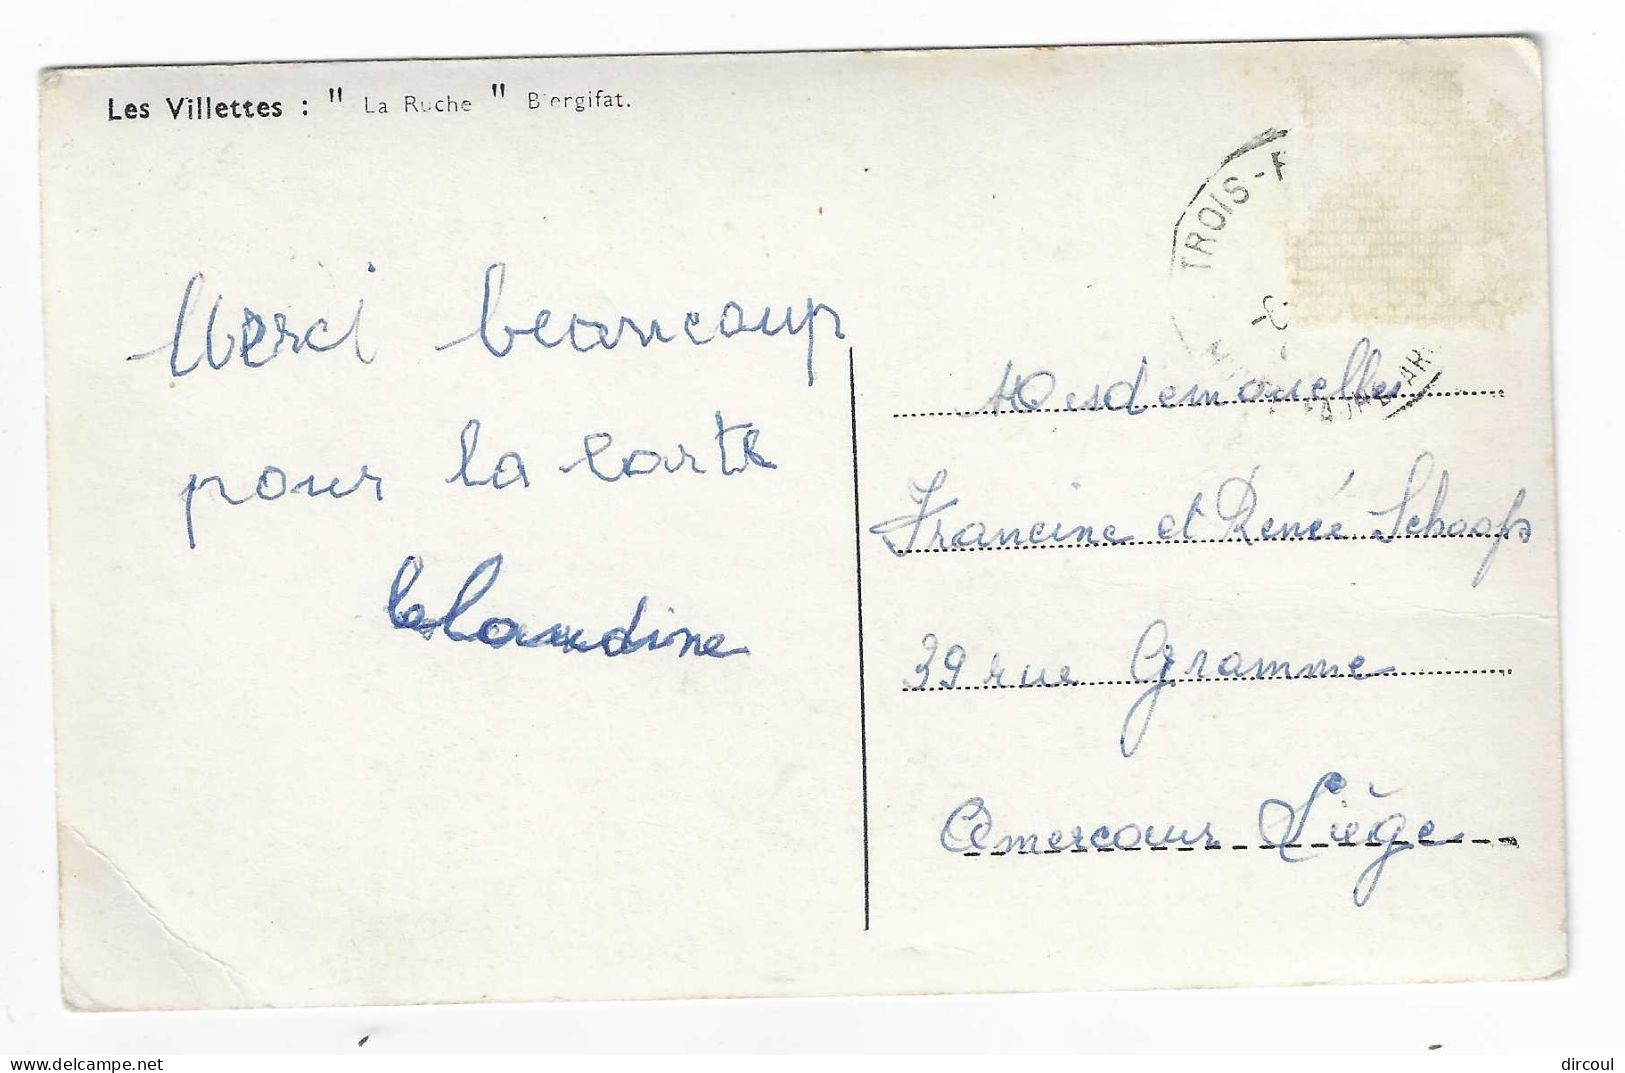 Les Villettes : " La Ruche " Biergifat.
TROIS-
Merci beaucoup
pour la carte
Claudine
Mesdemoiselles
Francine et Renée Schoofs
39 rue Gramme
Amercoeur Liège
delcampe.net
dircoul